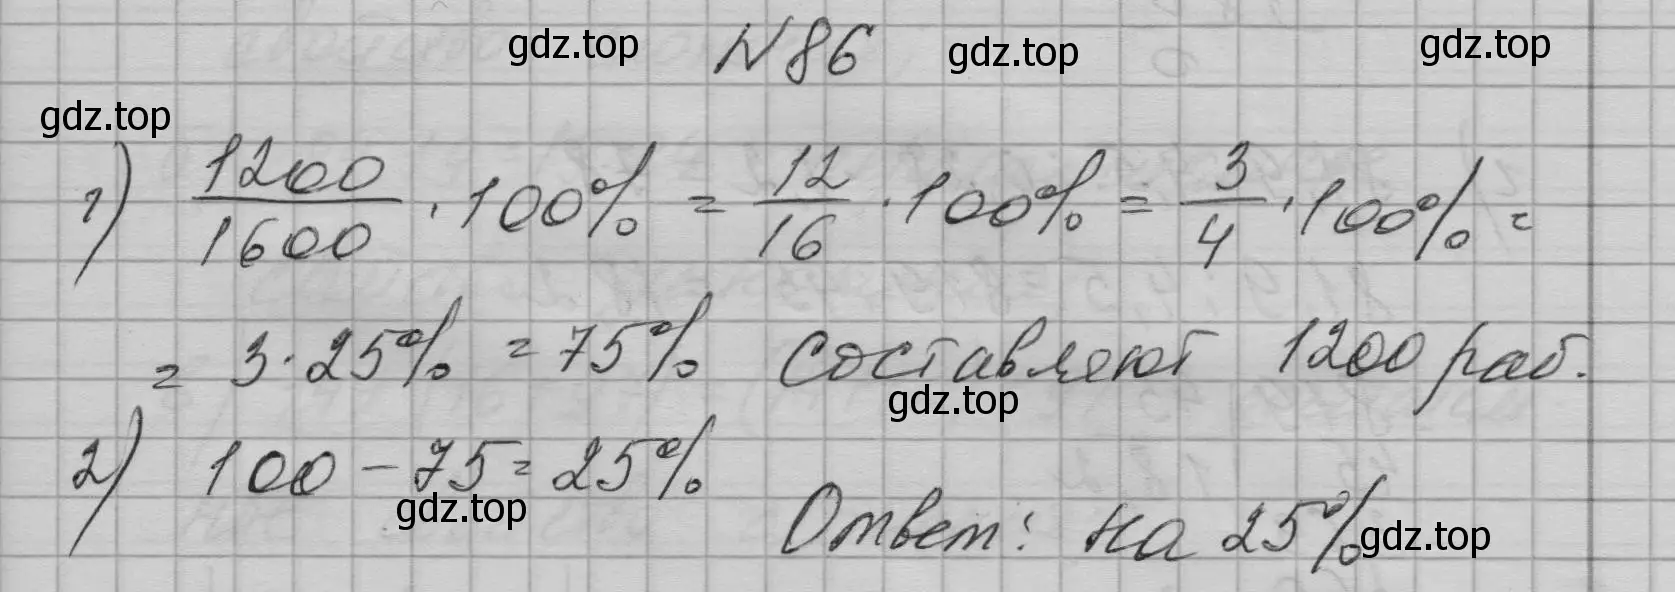 gdz.top № 86 gdz.top gdz.top
gdz.top
1) 1200/1600 · 100% = 12/16 · 100% = 3/4 · 100% =
= 3 · 25% = 75% составляют 1200 раб.
gdz.top
2) 100 - 75 = 25%
gdz.top Ответ: на 25% gdz.top